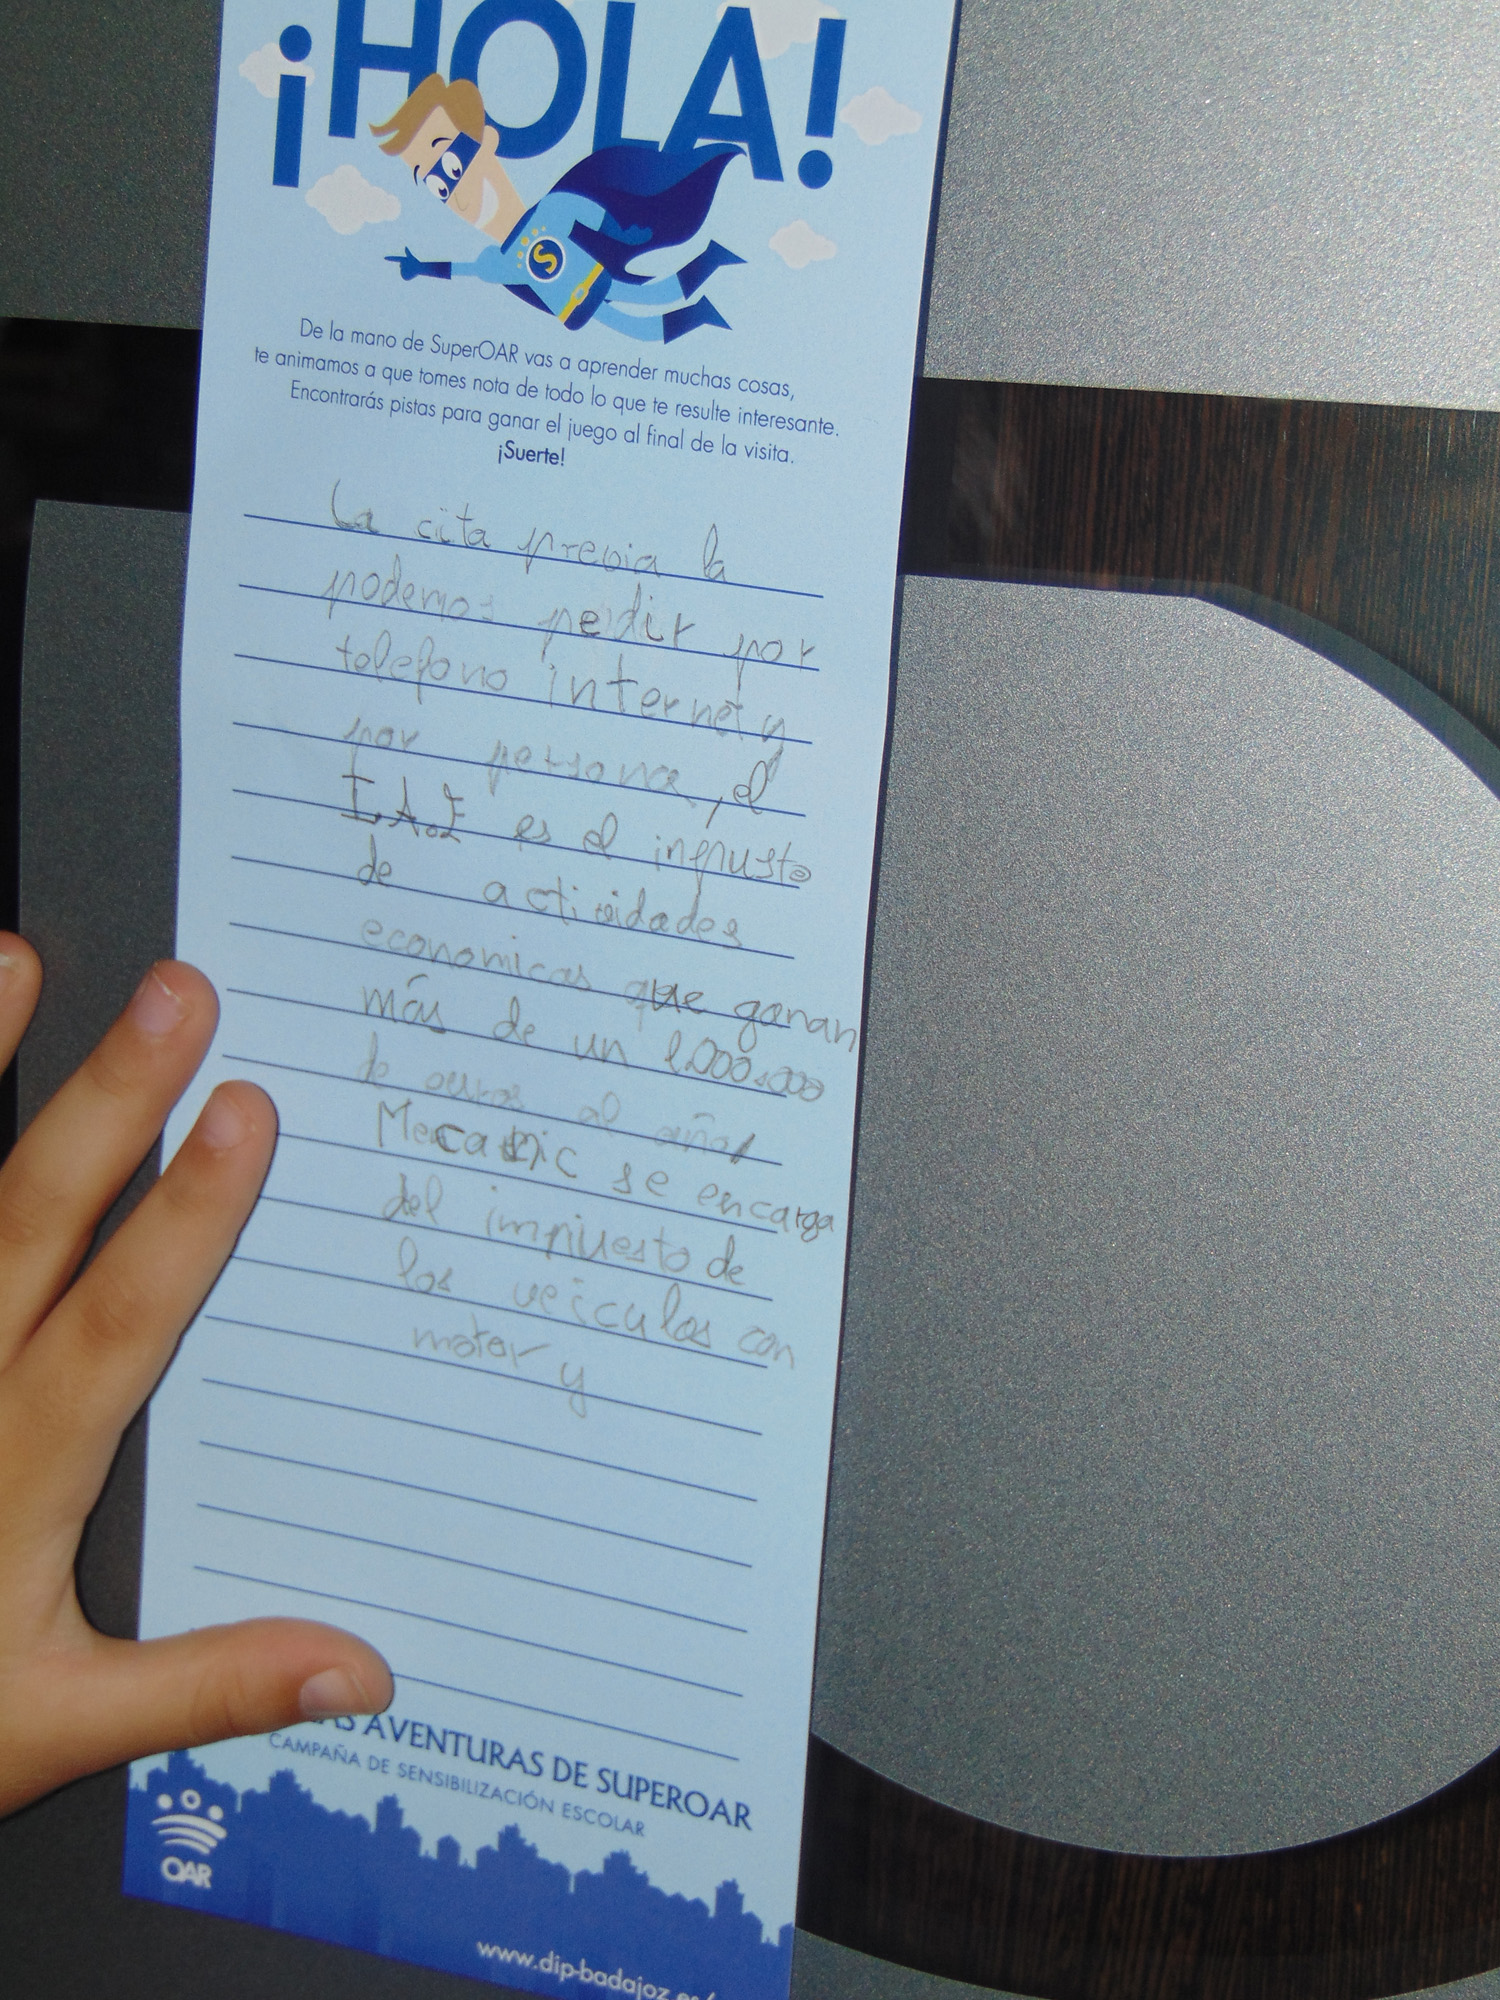 ¡HOLA!
S
De la mano de SuperOAR vas a aprender muchas cosas,
te animamos a que tomes nota de todo lo que te resulte interesante.
Encontrarás pistas para ganar el juego al final de la visita.
¡Suerte!
La cita previa la
podemos pedir por
telefono internet y
por persona, el
I.A.E es el inpusto
de actividades
economicas que ganan
más de un 1.000.000
de ouros al año,
Mecanic se encarga
del impiuesto de
los veiculos con
motor y
LAS AVENTURAS DE SUPEROAR
CAMPAÑA DE SENSIBILIZACIÓN ESCOLAR
OAR
www.dip-badajoz.es/